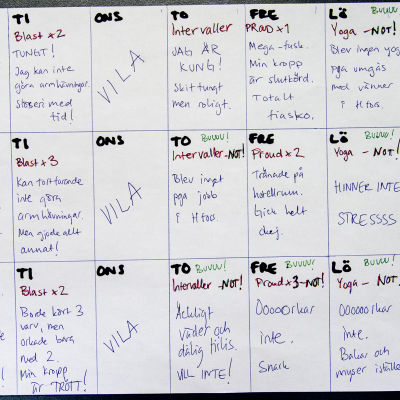 TI
Blast x2
TUNGT!
Jag kan inte
göra armhävningar.
med
tid!
ONS
VILA
TO
Intervaller
JAG ÄR
KUNG!
Skittungt
men roligt.
FRE
PROUD x1
Mega-fusk.
Min kropp
är slutkörd.
Totalt
fiasko.
LÖ
Buuu!
Yoga - NOT!
Blev ingen yoga
pga umgås
med vänner
i H fors.
TI
Blast x3
Kan fortfarande
inte göra
armhävningar.
Men gjorde allt
annat!
ONS
VILA
TO
Buuuu!
Intervaller -NOT!
Blev inget
pga jobb
i H fors.
FRE
Proud x2
Tränade på
hotellrum.
Gick helt
okej.
LÖ
Buuuu!
Yoga - NOT!
HINNER INTE
STRESSSS
TI
Blast x2
Borde kört 3
varv, men
orkade bara
med 2.
Min kropp
är TRÖTT!
ONS
VILA
TO
Buuuu!
Intervaller -NOT!
Äckligt
väder och
dålig
VILL INTE!
FRE
Buuuu!
Proud x3-NOT!
Ooooorkar
inte.
Snark
LÖ
Buuuu!
Yoga - NOT!
Oooooorkar
inte.
Bakar och
myser istället